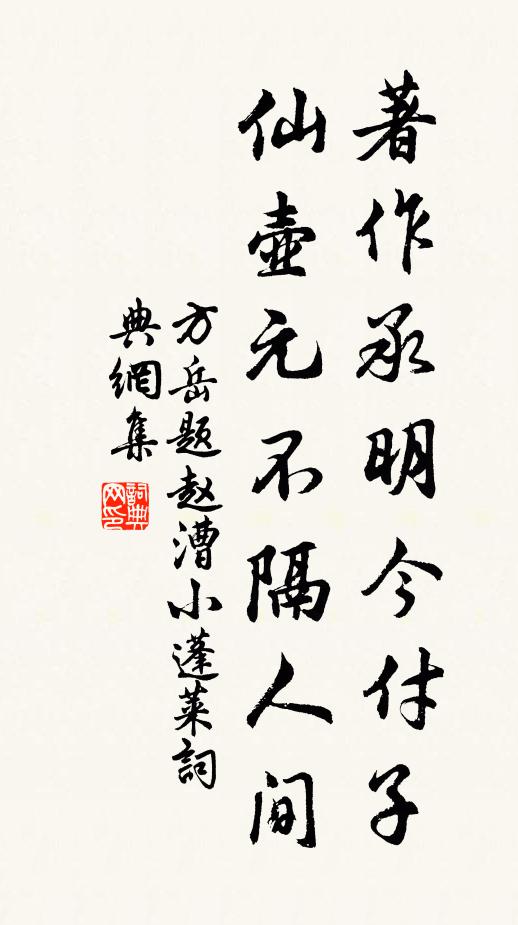 著作承明今付子
仙壺元不隔人间
方岳题赵漕小蓬莱詞
典網集
詞典
网印